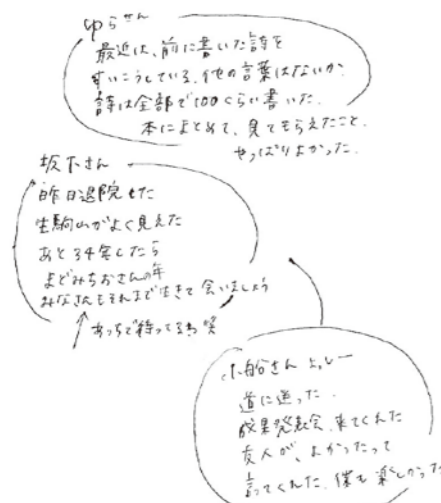 ゆらさん
最近は、前に書いた詩を
すいこうしている。他の言葉はないか。
詩は全部で100くらい書いた。
本にまとめて、見てもらえたこと、
やっぱりよかった。
坂下さん
昨日退院した
生駒山がよく見えた
あと34年したら
まどみちおさんの年
みなさんもそれまで生きて会いましょう
あっちで待ってるわ 笑
小船さん よっしー
道に迷った。
成果発表会、来てくれた
友人が、よかったって
言ってくれた。僕も楽しかった